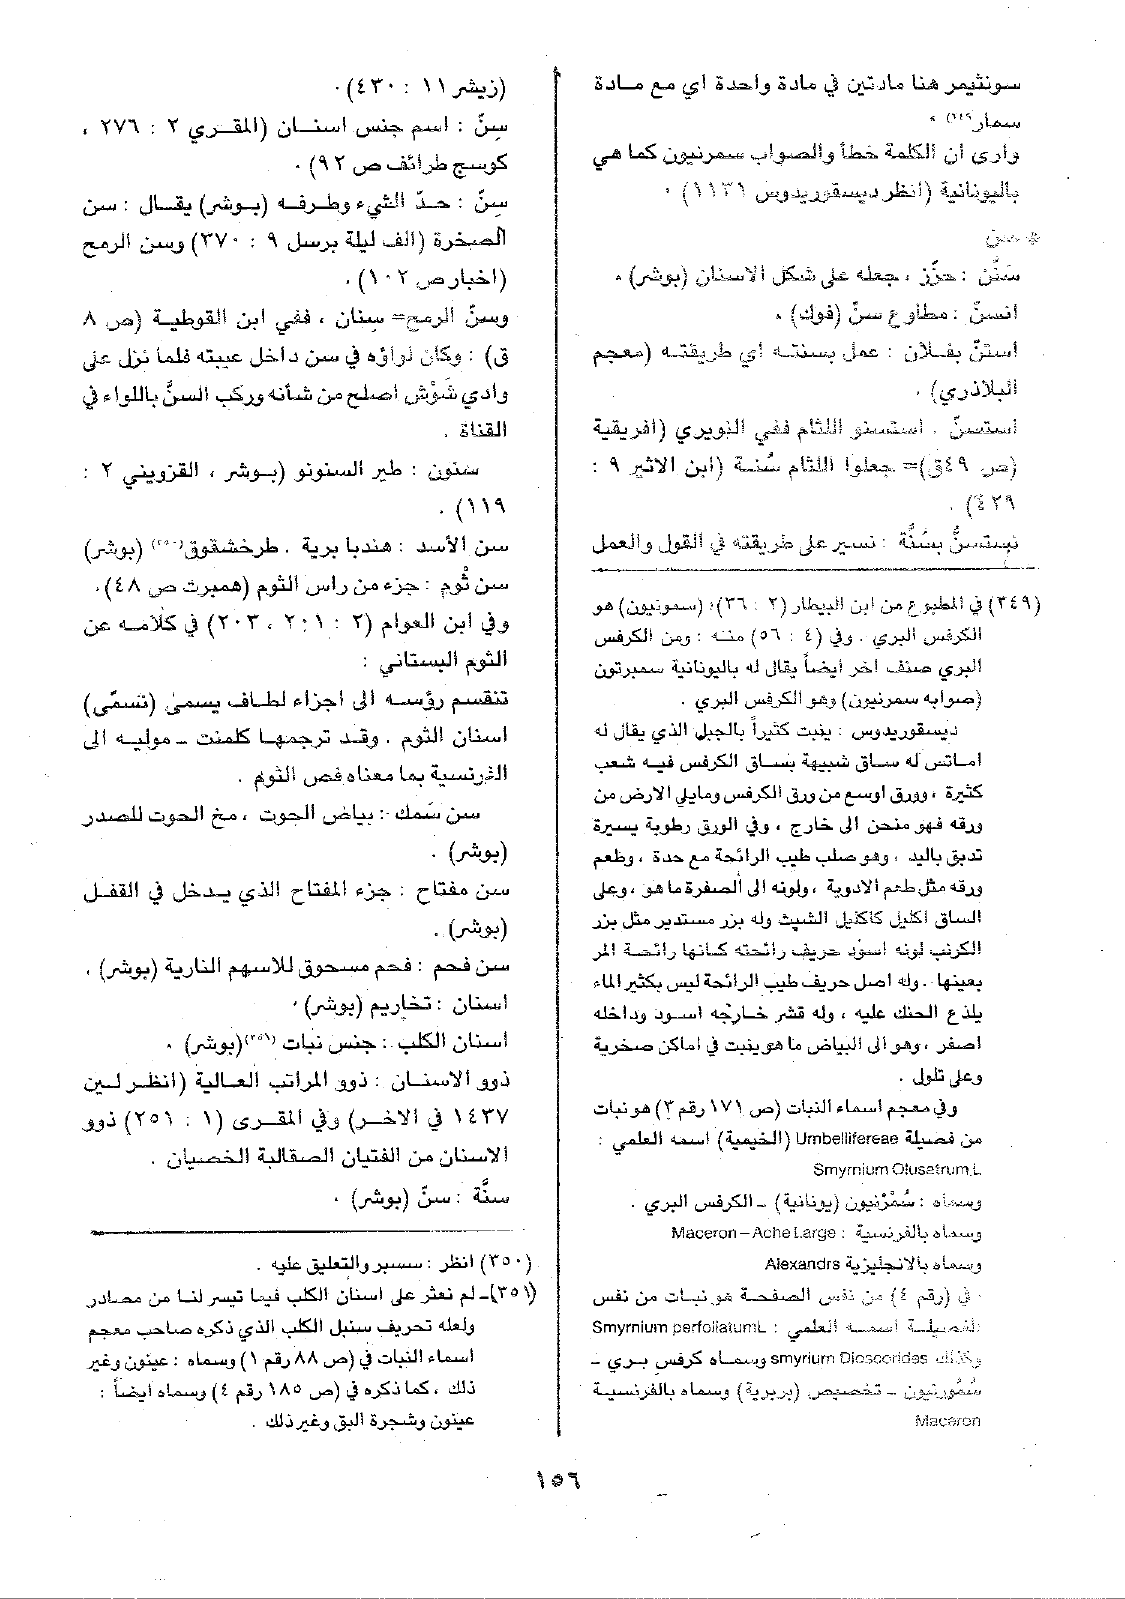 سونثيمر هنا مادتين في مادة واحدة اي مع مادة
سمار(٣٤٩) .
وارى ان الكلمة خطأ والصواب سمرنيون كما هي
باليونانية (انظر ديسقوريدوس ١١٣١) .
* سن
سَنَّن : حزّز ، جعله على شكل الاسنان (بوشر) .
انسنّ : مطاوع سنّ (فوك) .
استنّ بفلان : عمل بسنته اي طريقته (معجم
البلاذري) .
استسنّ . استسنو اللثام ففي النويري (افريقية
(ص ٤٩ق)= جعلوا اللثام سُنة (ابن الاثير ٩ :
٤٢٩) .
نستسنُّ بسُنَّة : نسير على طريقته في القول والعمل
(٣٤٩) في المطبوع من ابن البيطار (٢ : ٣٦): (سمونيون) هو
الكرفس البري . وفي (٤ : ٥٦) منه : ومن الكرفس
البري صنف اخر ايضاً يقال له باليونانية سميرتون
(صوابه سمرنيون) وهو الكرفس البري .
ديسقوريدوس : ينبت كثيراً بالجبل الذي يقال له
امانس له ساق شبيهة بساق الكرفس فيه شعب
كثيرة ، وورق اوسع من ورق الكرفس ومايلي الارض من
ورقه فهو منحن الى خارج ، وفي الورق رطوبة يسيرة
تدبق باليد ، وهو صلب طيب الرائحة مع حدة ، وطعم
ورقه مثل طعم الادوية ، ولونه الى الصفرة ما هو ، وعلى
الساق اكليل كاكليل الشبث وله بزر مستدير مثل بزر
الكرنب لونه اسود حريف رائحته كانها رائحة المر
بعينها . وله اصل حريف طيب الرائحة ليس بكثير الماء
يلذع الحنك عليه ، وله قشر خارجه اسود وداخله
اصفر ، وهو الى البياض ما هو ينبت في اماكن صخرية
وعلى تلول .
وفي معجم اسماء النبات (ص ١٧١ رقم ٣) هو نبات
من فصيلة Umbellifereae (الخيمية) اسمه العلمي :
Smyrnium Olusatrum.L
وسماه : سُمُرْنيون (يونانية) - الكرفس البري .
وسماه بالفرنسية : Maceron - Ache Large
وسماه بالانجليزية Alexandrs
في (رقم ٤) من نفس الصفحة هو نبات من نفس
الفصيلة اسمه العلمي : Smyrnium perfoliatumL
وكذلك smyrium Dioscorides وسماه كرفس بري -
سُمُّورنيون - تخصيص (بربرية) وسماه بالفرنسية
Maceron
(زيشر ١١ : ٤٣٠) .
سِنّ : اسم جنس اسنان (المقري ٢ : ٢٧٦ ،
كوسج طرائف ص ٩٢) .
سِنّ : حدّ الشيء وطرفه (بوشر) يقال : سن
الصخرة (الف ليلة برسل ٩ : ٣٧٠) وسن الرمح
(اخبار ص ١٠٢) .
وسنّ الرمح= سِنان ، ففي ابن القوطية (ص ٨
ق) : وكان لواؤه في سن داخل عيبته فلما نزل على
وادي شَوْش اصلح من شأنه وركب السنَّ باللواء في
القناة .
سنون : طير السنونو (بوشر ، القزويني ٢ :
١١٩) .
سن الأسد : هندبا برية . طرخشقوق(٣٥٠) (بوشر)
سن ثُوم : جزء من راس الثوم (همبرت ص ٤٨).
وفي ابن العوام (٢ : ٢٠١ ، ٢٠٣) في كلامه عن
الثوم البستاني :
تنقسم رؤسه الى اجزاء لطاف يسمى (تسمّى)
اسنان الثوم . وقد ترجمها كلمنت - موليه الى
الفرنسية بما معناه فص الثوم .
سن سَمك : بياض الحوت ، مخ الحوت للصدر
(بوشر) .
سن مفتاح : جزء المفتاح الذي يدخل في القفل
(بوشر) .
سن فحم : فحم مسحوق للاسهم النارية (بوشر) ،
اسنان : تخاريم (بوشر) .
اسنان الكلب : جنس نبات (٣٥١)(بوشر) .
ذوو الاسنان : ذوو المراتب العالية (انظر لين
١٤٣٧ في الاخر) وفي المقرى (١ : ٢٥١) ذوو
الاسنان من الفتيان الصقالبة الخصيان .
سنَّة : سنّ (بوشر) .
(٣٥٠) انظر : سسبر والتعليق عليه .
(٣٥١)- لم نعثر على اسنان الكلب فيما تيسر لنا من مصادر
ولعله تحريف سنبل الكلب الذي ذكره صاحب معجم
اسماء النبات في (ص ٨٨ رقم ١) وسماه : عينون وغير
ذلك ، كما ذكره في (ص ١٨٥ رقم ٤) وسماه ايضاً :
عينون وشجرة البق وغير ذلك .
١٥٦